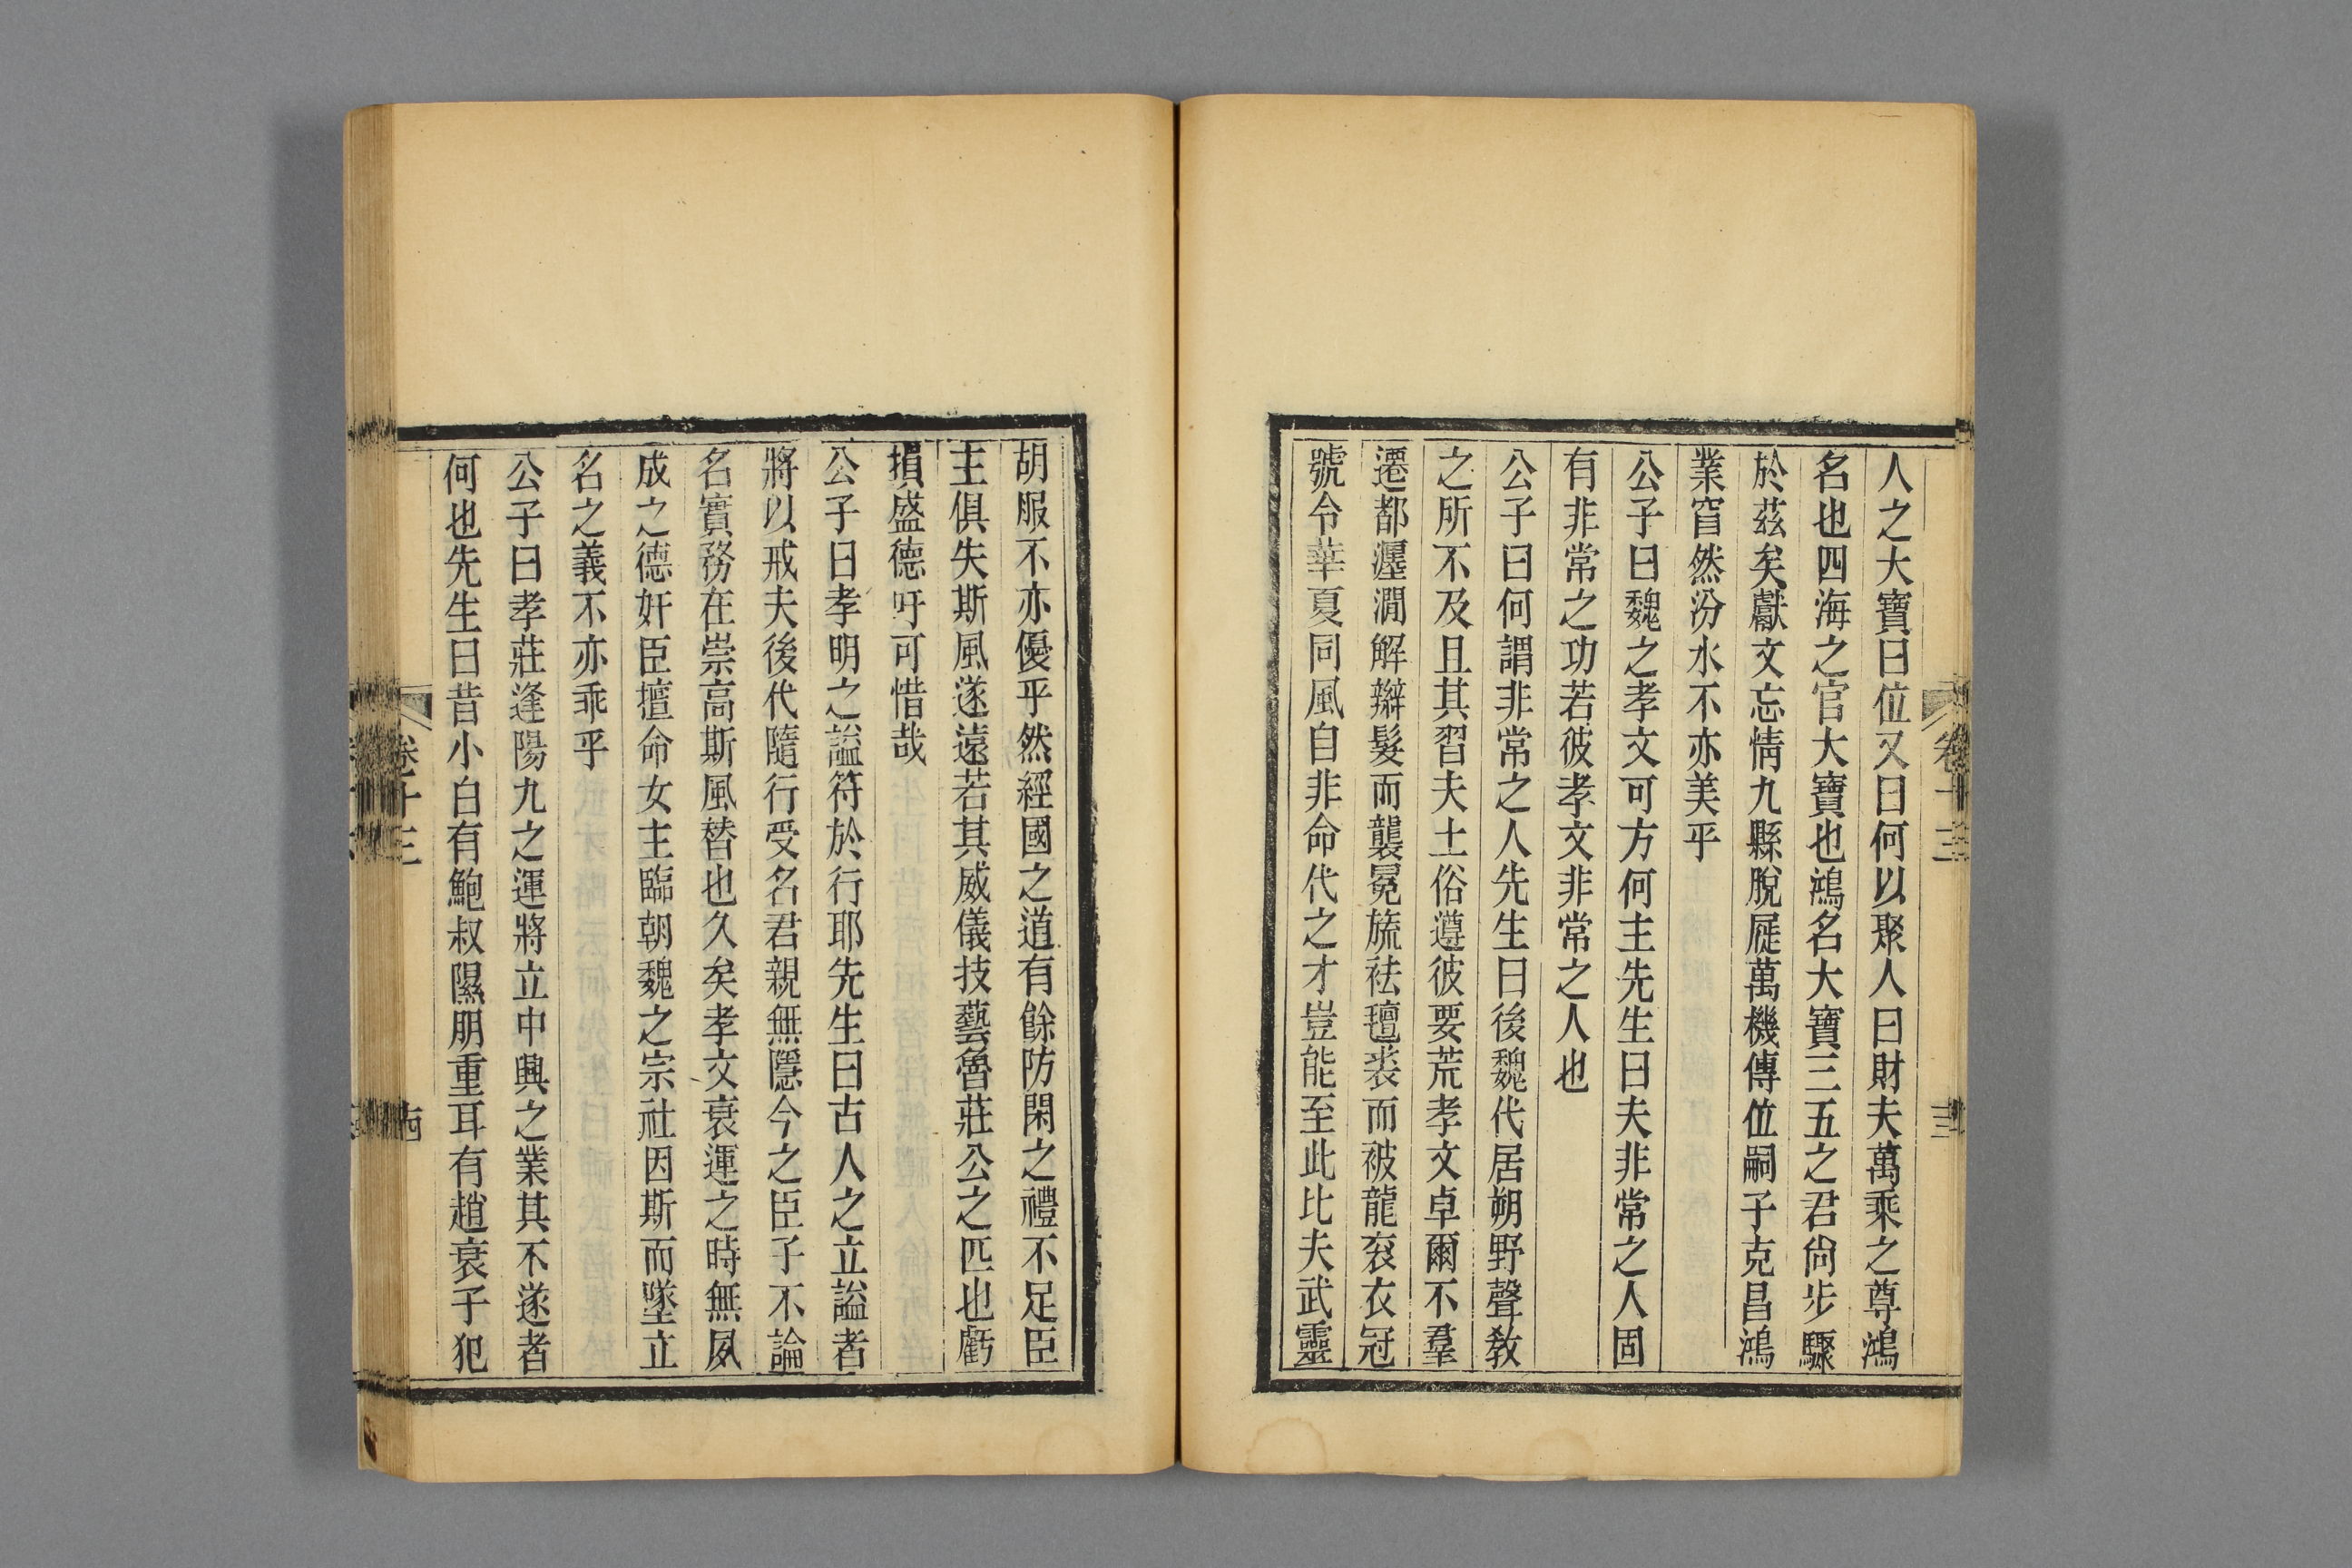 人之大寶曰位又曰何以聚人曰財夫萬乘之尊鴻
名也四海之官大寶也鴻名大寶三五之君尙步驟
於茲矣獻文忘情九縣脫屣萬機傳位嗣子克昌鴻
業窅然汾水不亦美乎
公子曰魏之孝文可方何主先生曰夫非常之人固
有非常之功若彼孝文非常之人也
公子曰何謂非常之人先生曰後魏代居朔野聲教
之所不及且其習夫土俗遵彼要荒孝文卓爾不羣
遷都瀍澗解辮髮而襲冕旒祛氊裘而被龍袞衣冠
號令華夏同風自非命代之才豈能至此比夫武靈
卷十三
三
胡服不亦優乎然經國之道有餘防閑之禮不足臣
主俱失斯風遂遠若其威儀技藝魯莊公之匹也虧
損盛德吁可惜哉
公子曰孝明之謚符於行耶先生曰古人之立謚者
將以戒夫後代隨行受名君親無隱今之臣子不論
名實務在崇高斯風替也久矣孝文衰運之時無夙
成之德奸臣擅命女主臨朝魏之宗社因斯而墜立
名之義不亦乖乎
公子曰孝莊逢陽九之運將立中興之業其不遂者
何也先生曰昔小白有鮑叔隰朋重耳有趙衰子犯
卷十三
四